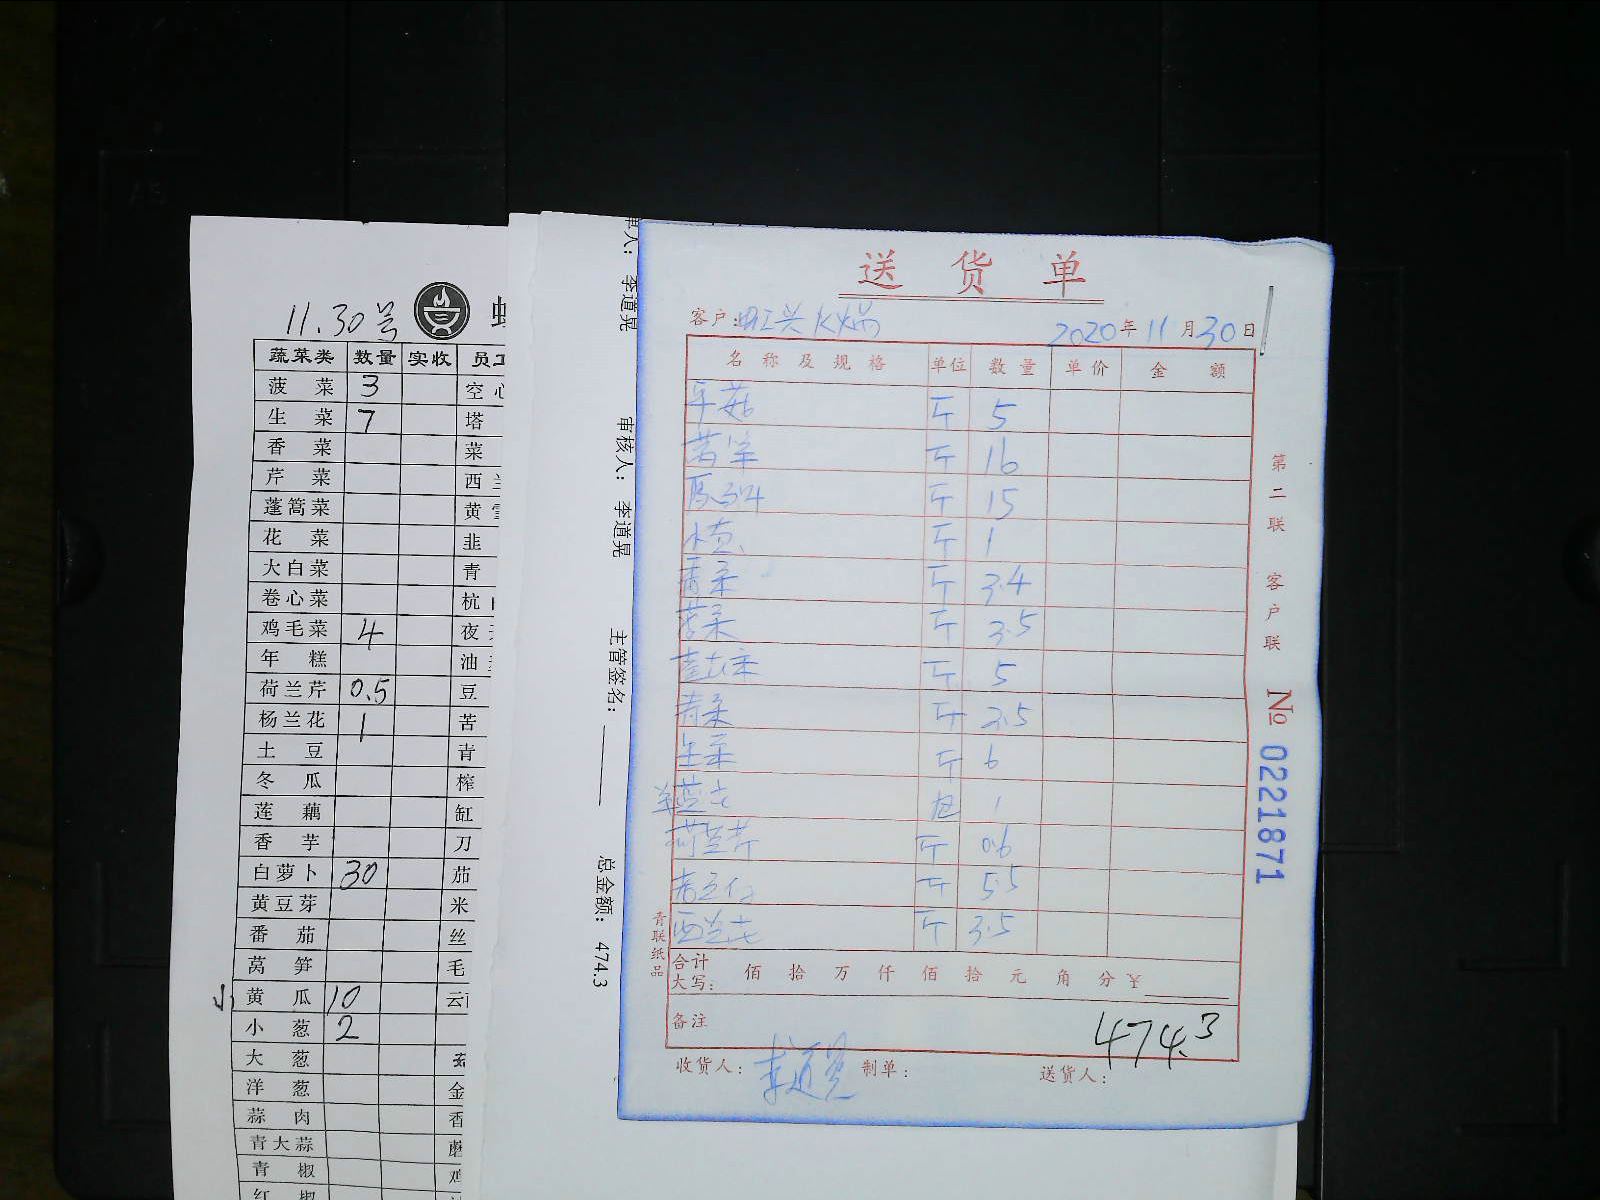 11.30号
蔬菜类 数量 实收 员工
菠菜 3 空心
生菜 7 塔
香菜 菜
芹菜 西兰
蓬篙菜 黄
花菜 韭
大白菜 青
卷心菜 杭
鸡毛菜 4 夜
年糕 油
荷兰芹 0.5 豆
杨兰花 1 苦
土豆 青
冬瓜 榨
莲藕 缸
香芋 刀
白萝卜 30 茄
黄豆芽 米
番茄 丝
莴笋 毛
小 黄瓜 10 云
小葱 2
大葱 菇
洋葱 金
蒜肉 香
青大蒜 蘑
青椒 鸡
红椒
单人: 李道晃
审核人: 李道晃
主管签名:
总金额: 474.3
送货单
客户: 火锅
2020年11月30日
名称及规格 单位 数量 单价 金额
平菇 斤 5
斤 16
斤 15
小葱 斤 1
香菜 斤 3.4
斤 3.5
斤 5
青菜 斤 3.5
生菜 斤 6
1
荷兰芹 斤 0.6
斤 5.5
西兰花 斤 3.5
合计大写: 佰 拾 万 仟 佰 拾 元 角 分 ¥
备注 474.3
收货人: 李道晃 制单: 送货人:
第二联 客户联
No 0221871
青联纸品